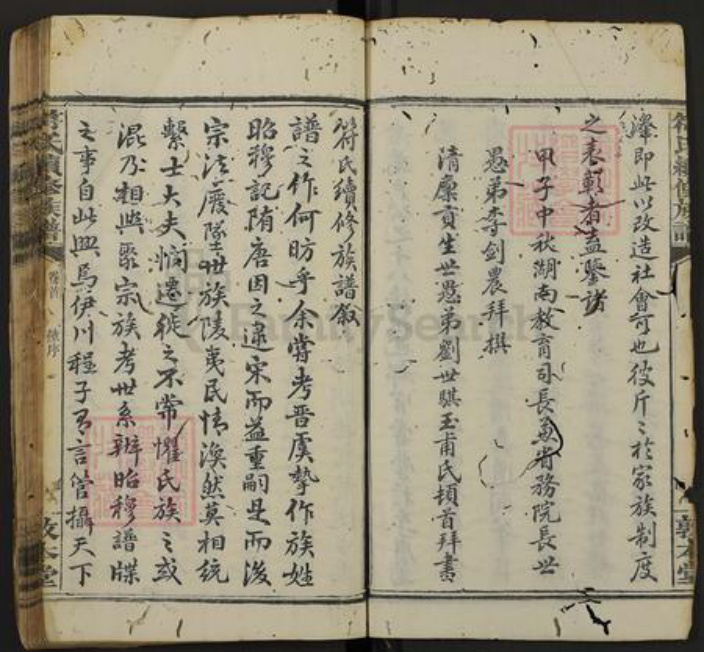 澤即此以改造社會可也彼斤〻於家族制度
之表彰者盍鑒諸
甲子中秋湖南教育司長兼省務院長世
愚弟李劍農拜撰
清廩貢生世愚弟劉世騏玉甫氏頓首拜書
敦本堂
符氏續修族譜叙
譜之作何昉乎余嘗考晋虞摯作族姓
昭穆記隋唐因之逮宋而益重嗣是而後
宗法廢墜世族陵夷民情渙然莫相統
繫士大夫憫遷徙之不常懼氏族之或
混乃相與聚宗族考世系辨昭穆譜牒
之事自此興焉伊川程子有言管攝天下
符氏續修族譜
卷首
敦本堂
FamilySearch